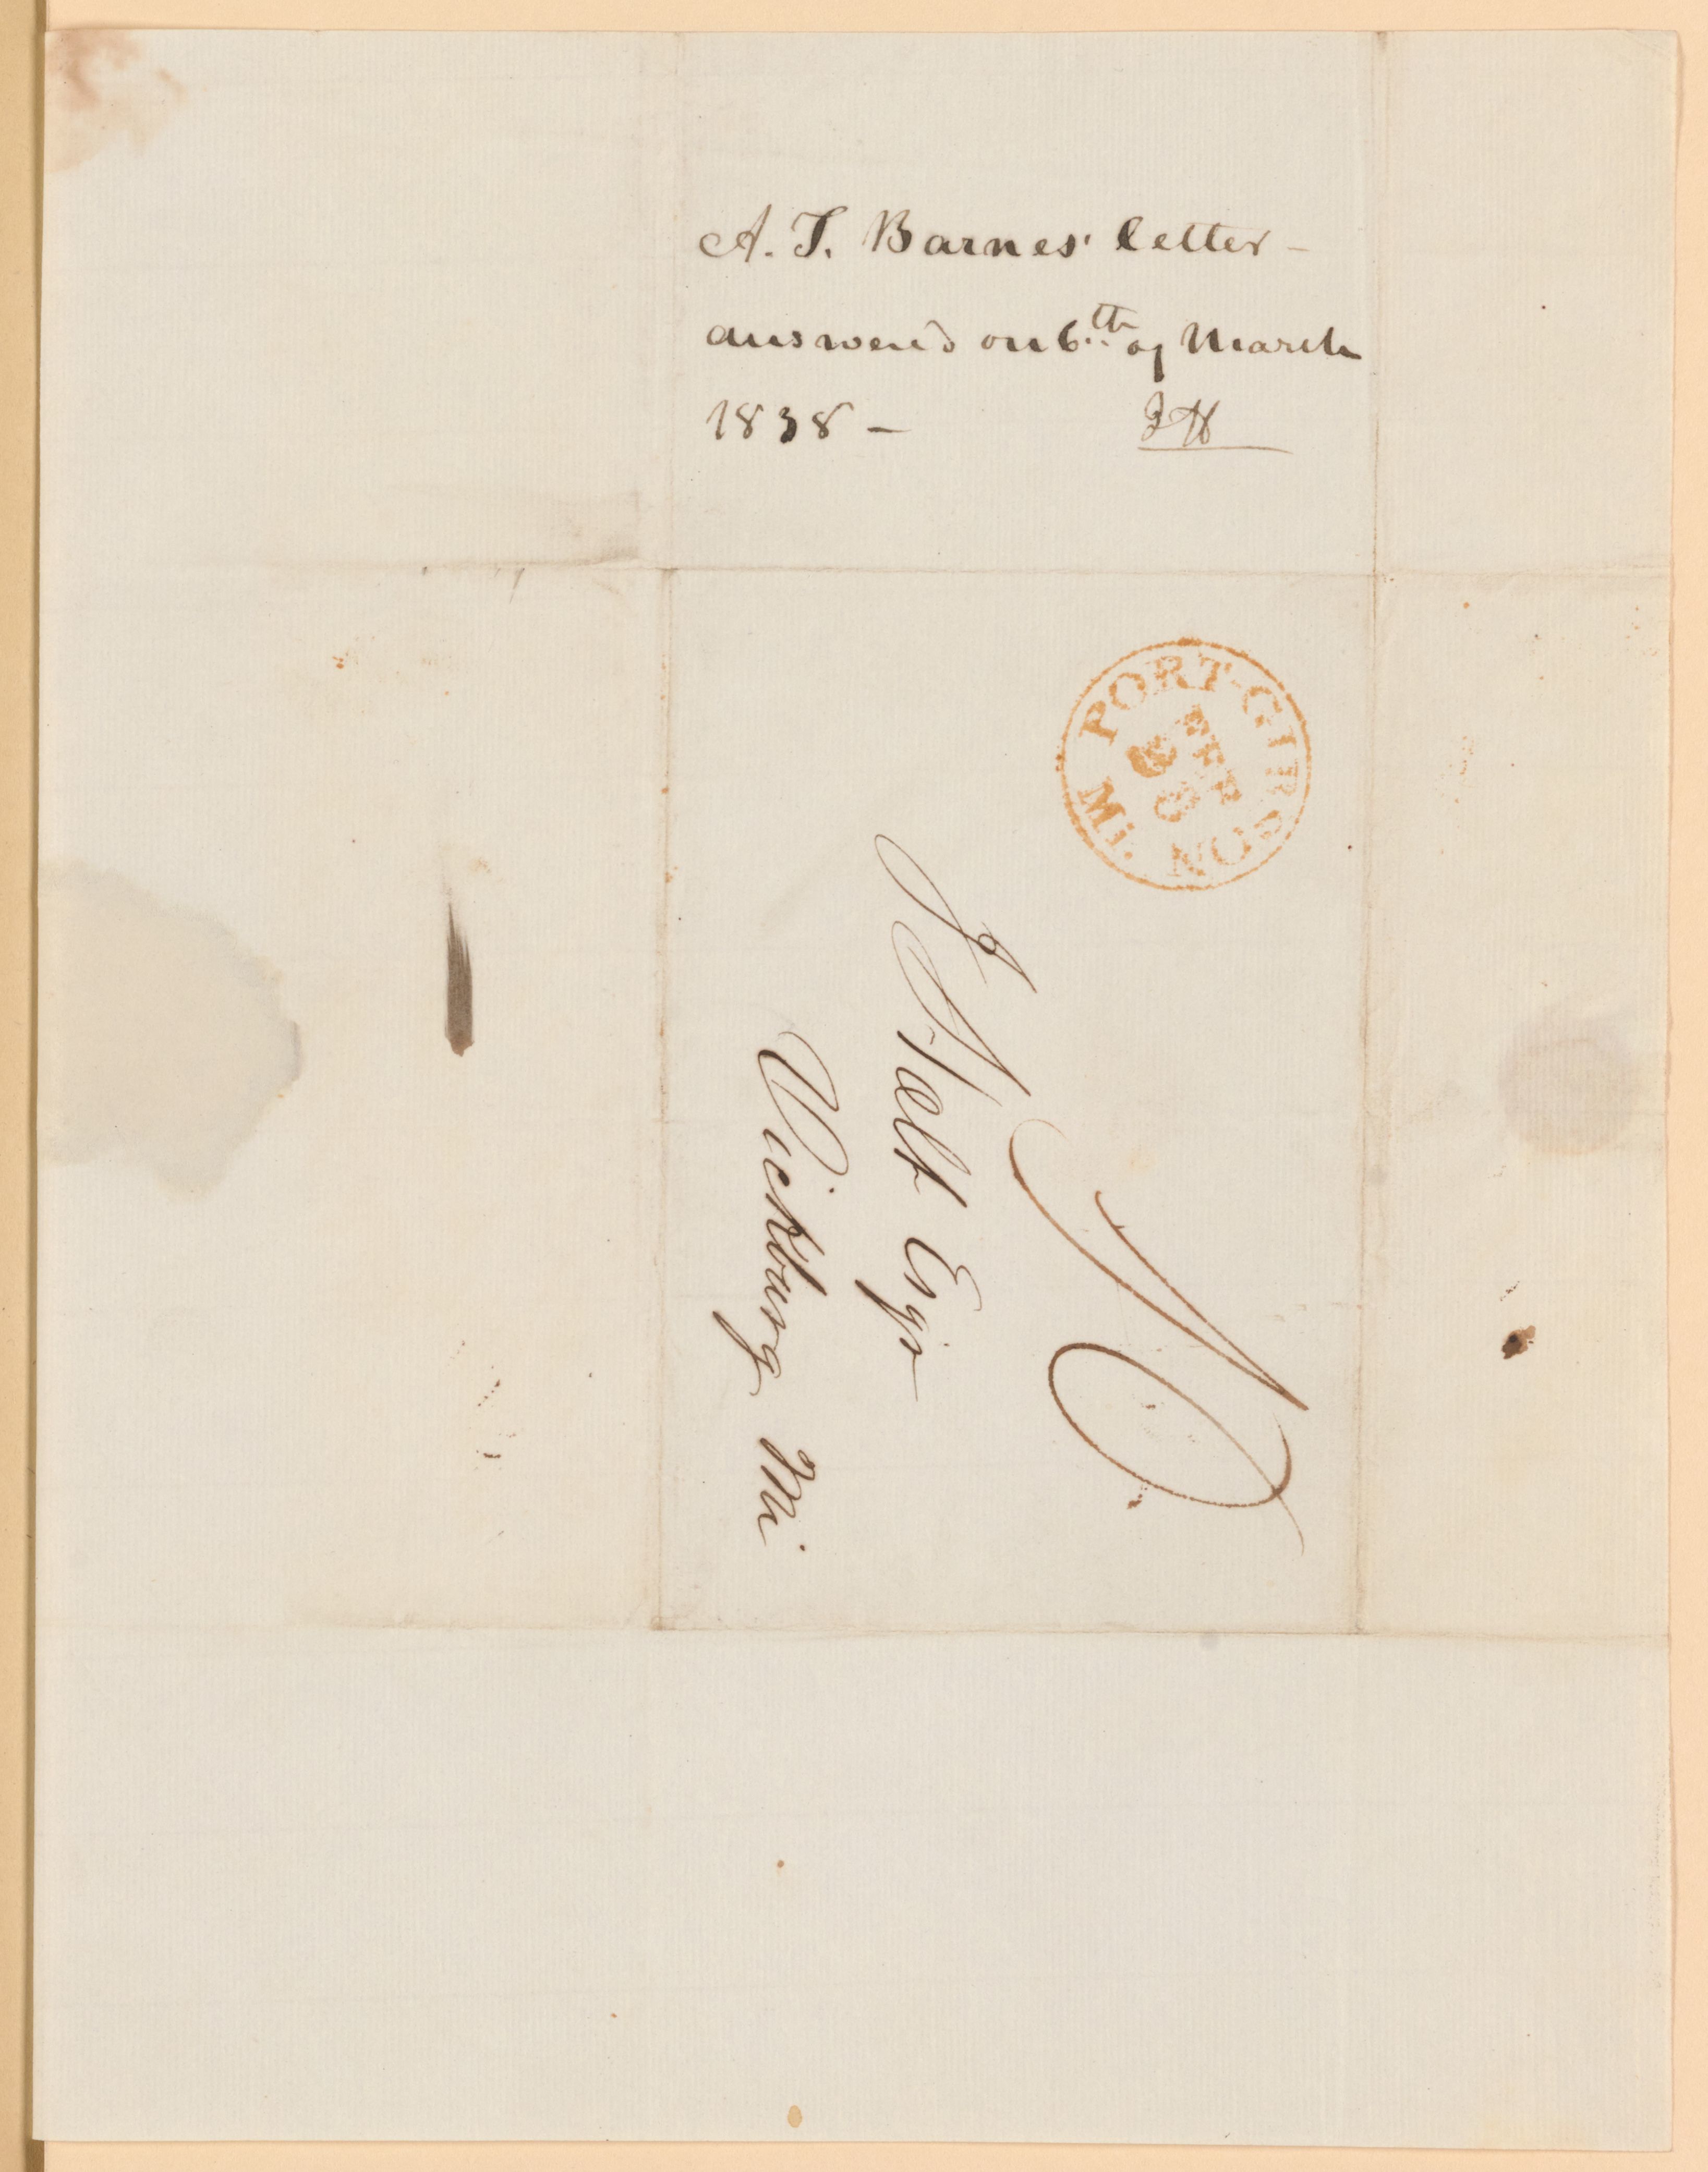 A. T. Barnes' letter -
answered on 6th of March
1838 -
JH
PORT-GIBSON Mi.
FEB
10
J Holt Esqr
Vicksburg Mi.